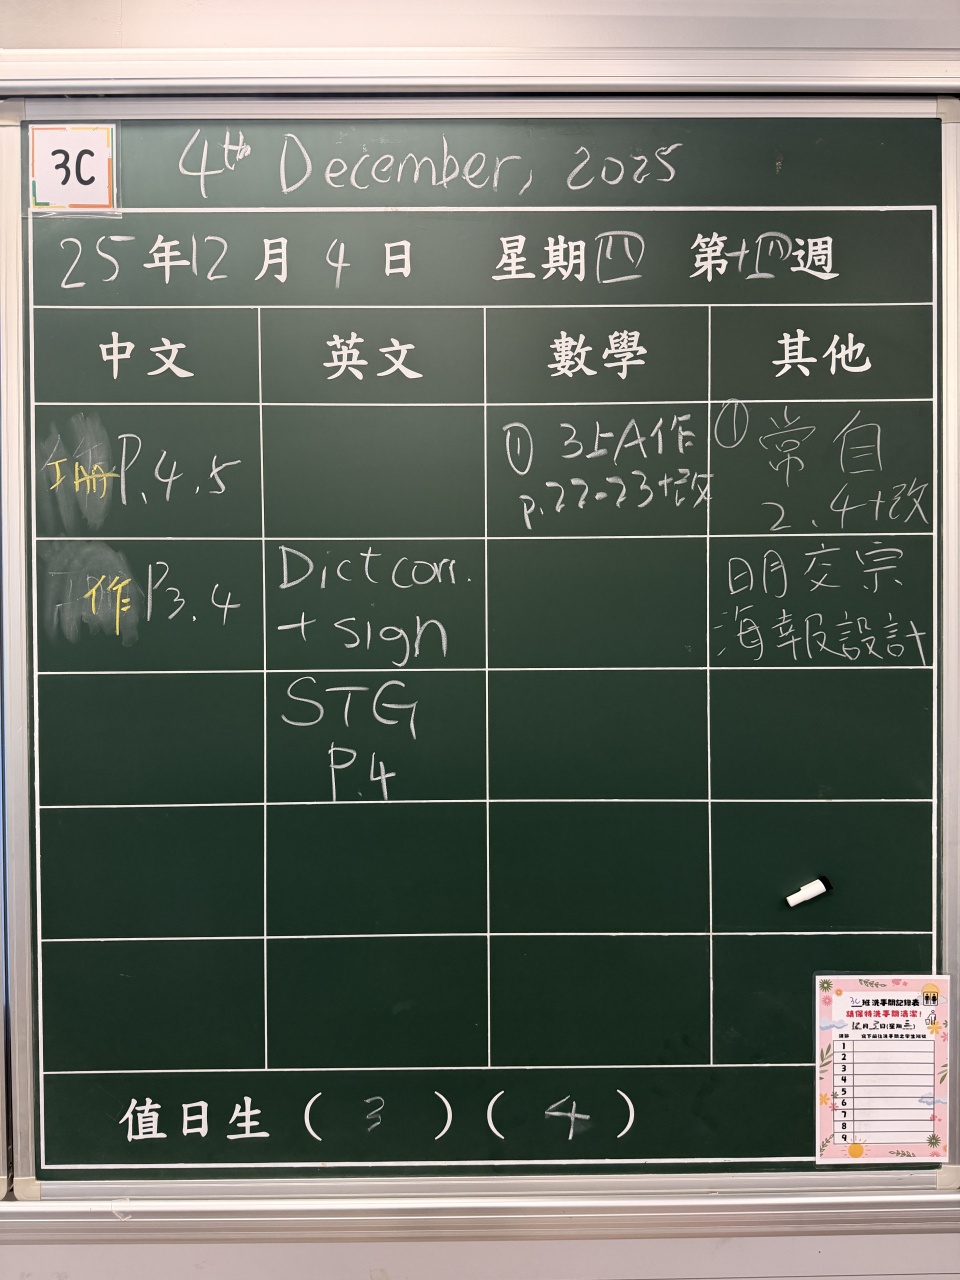 3C
4th December, 2025
25年12月4日 星期四 第十四週
中文 英文 數學 其他
P.4.5
① 3上A作
p.22-23+改
① 常自
2.4+改
作 P3.4
Dict corr.
+ sign
明交宗
海報設計
STG
P.4
值日生 ( 3 ) ( 4 )
3C班洗手間記錄表
請保持洗手間清潔！
12月3日(星期三)
1
2
3
4
5
6
7
8
9